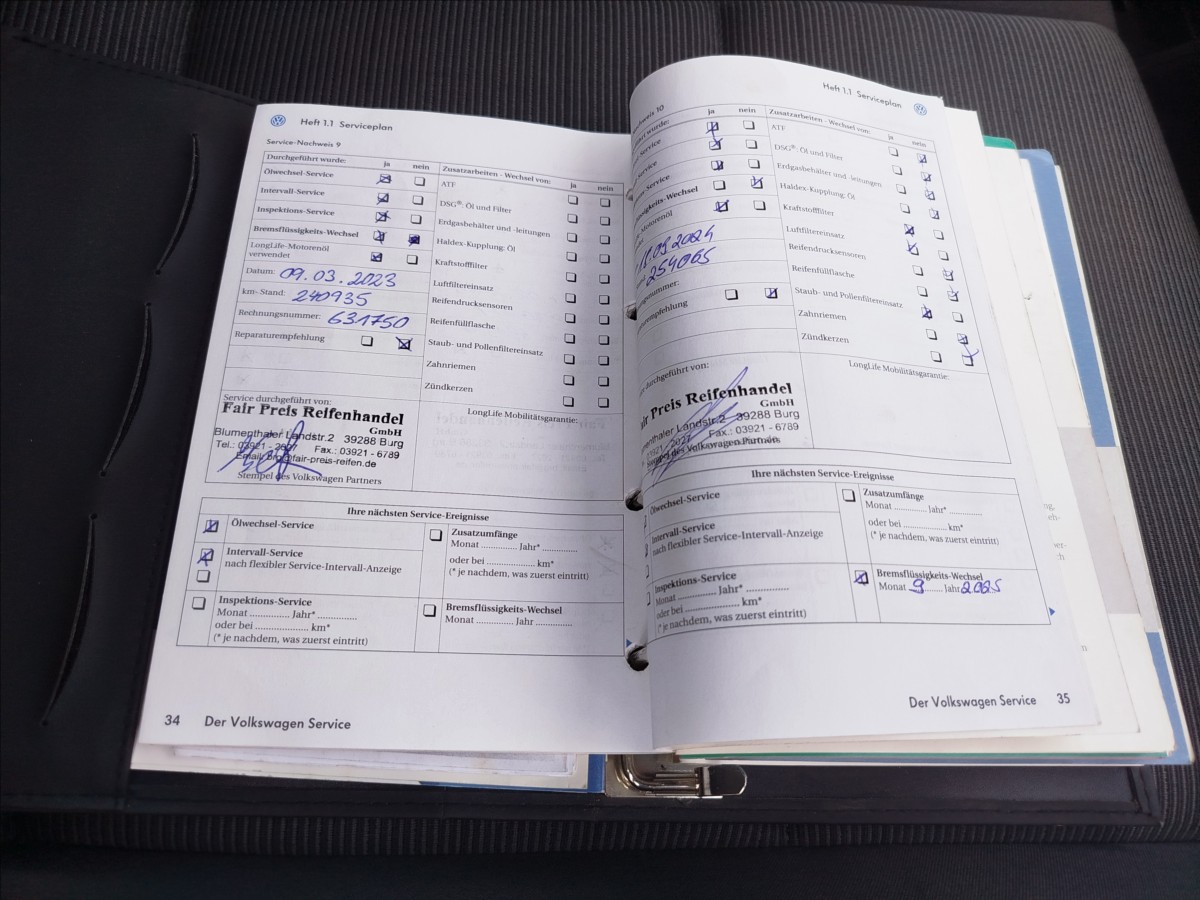 Heft 1.1 Serviceplan
Service-Nachweis 9
Durchgeführt wurde: ja nein
Ölwechsel-Service
Intervall-Service
Inspektions-Service
Bremsflüssigkeits-Wechsel
LongLife-Motorenöl
verwendet
Datum: 09.03.2023
km-Stand: 240935
Rechnungsnummer: 631750
Reparaturempfehlung
Zusatzarbeiten - Wechsel von: ja nein
ATF
DSG®: Öl und Filter
Erdgasbehälter und -leitungen
Haldex-Kupplung: Öl
Kraftstofffilter
Luftfiltereinsatz
Reifendrucksensoren
Reifenfüllflasche
Staub- und Pollenfiltereinsatz
Zahnriemen
Zündkerzen
Service durchgeführt von:
Fair Preis Reifenhandel
GmbH
Blumenthaler Landstr.2 39288 Burg
Tel.: 03921 - Fax.: 03921 - 6789
Email: brg@fair-preis-reifen.de
Stempel des Volkswagen Partners
LongLife Mobilitätsgarantie:
Ihre nächsten Service-Ereignisse
Ölwechsel-Service
Intervall-Service
nach flexibler Service-Intervall-Anzeige
Inspektions-Service
Monat .............. Jahr* ..............
oder bei ..................... km*
(* je nachdem, was zuerst eintritt)
Zusatzumfänge
Monat ............. Jahr* .............
oder bei .................... km*
(* je nachdem, was zuerst eintritt)
Bremsflüssigkeits-Wechsel
Monat ............. Jahr .............
34 Der Volkswagen Service
Heft 1.1 Serviceplan
10
ja nein
wurde:
Service
Service
Service
Wechsel
Motorenöl
254065
Zusatzarbeiten - Wechsel von: ja nein
ATF
DSG®: Öl und Filter
Erdgasbehälter und -leitungen
Haldex-Kupplung: Öl
Kraftstofffilter
Luftfiltereinsatz
Reifendrucksensoren
Reifenfüllflasche
Staub- und Pollenfiltereinsatz
Zahnriemen
Zündkerzen
durchgeführt von:
Preis Reifenhandel
GmbH
Landstr.2 39288 Burg
Fax.: 03921 - 6789
Stempel des Volkswagen Partners
LongLife Mobilitätsgarantie:
Ihre nächsten Service-Ereignisse
Ölwechsel-Service
Intervall-Service
nach flexibler Service-Intervall-Anzeige
Inspektions-Service
Monat .............. Jahr* ..............
oder bei ..................... km*
(* je nachdem, was zuerst eintritt)
Zusatzumfänge
Monat ............. Jahr* .............
oder bei .................... km*
(* je nachdem, was zuerst eintritt)
Bremsflüssigkeits-Wechsel
Monat 9 Jahr 2025
Der Volkswagen Service 35